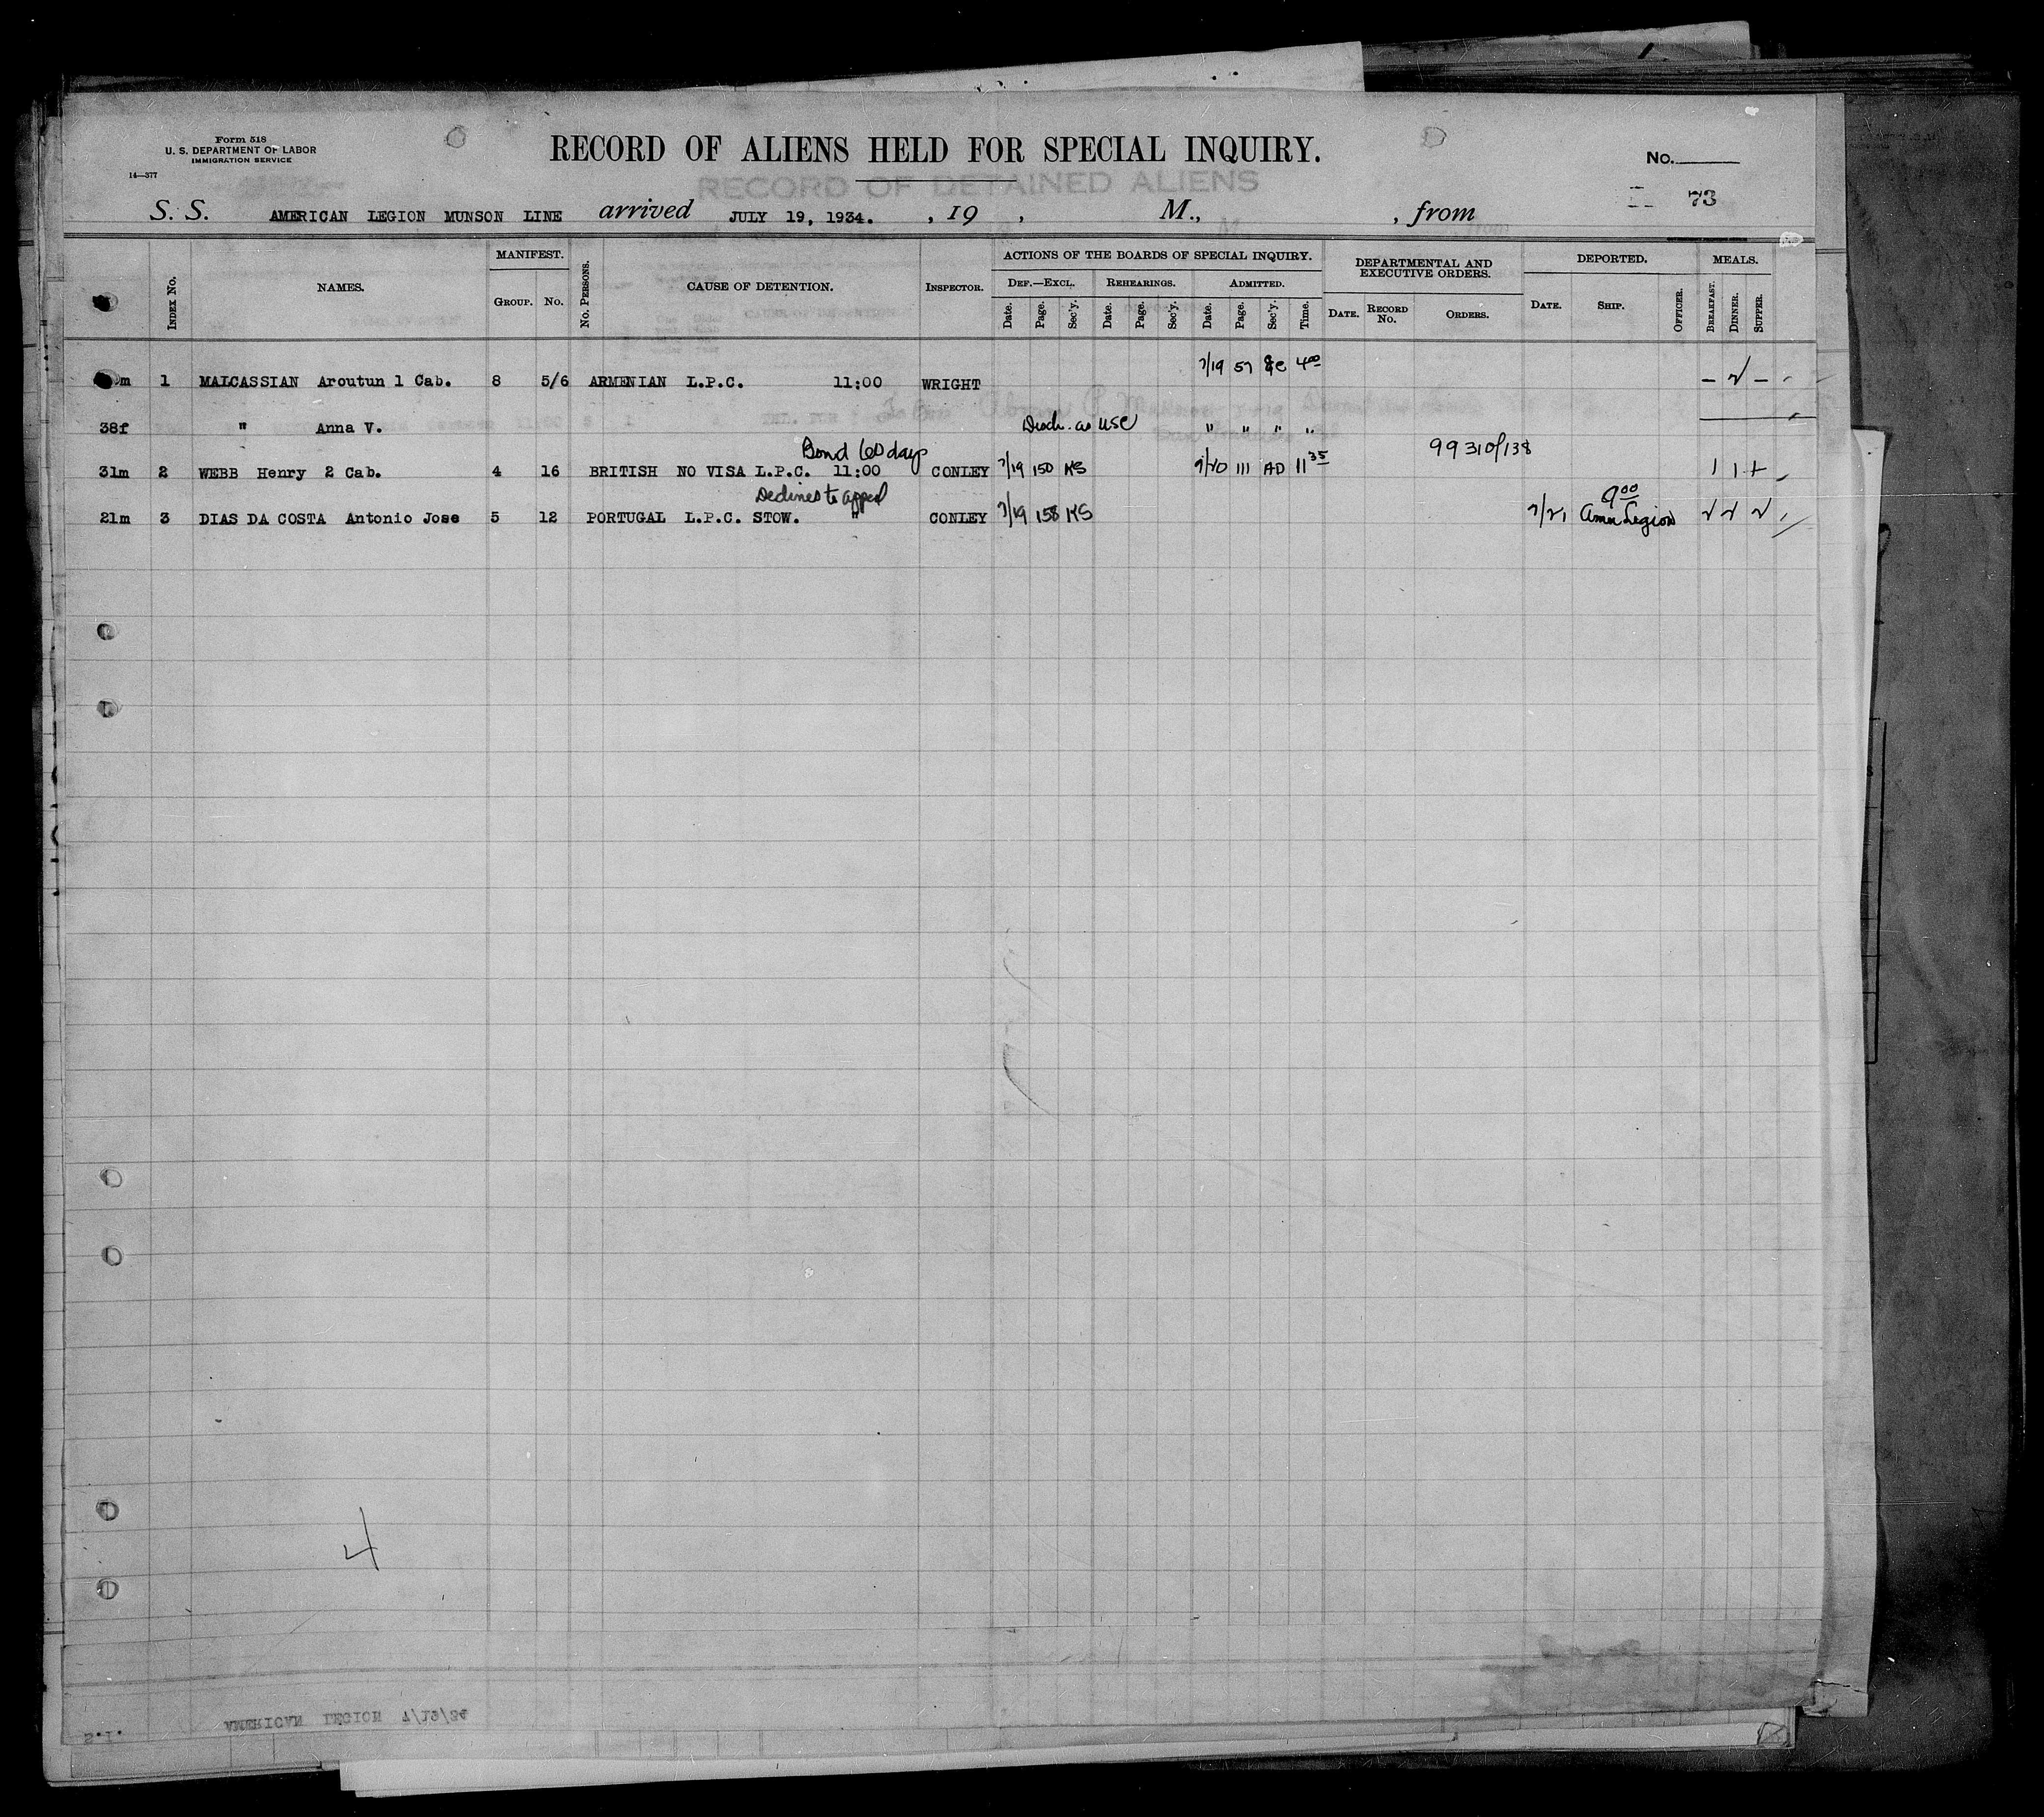 Form 518
U. S. DEPARTMENT OF LABOR
IMMIGRATION SERVICE
14—377
RECORD OF ALIENS HELD FOR SPECIAL INQUIRY.
RECORD OF DETAINED ALIENS
No.
73
S. S. AMERICAN LEGION MUNSON LINE arrived JULY 19, 1934. , 19 , M., , from
Index No. NAMES. MANIFEST. Group. No. No. Persons. CAUSE OF DETENTION. Inspector. ACTIONS OF THE BOARDS OF SPECIAL INQUIRY. DEPARTMENTAL AND EXECUTIVE ORDERS. DEPORTED. MEALS.
Def.—Excl. Rehearings. Admitted.
Date. Page. Sec'y. Date. Page. Sec'y. Date. Page. Sec'y. Time. Date. Record No. Orders. Date. Ship. Officer. Breakfast. Dinner. Supper.
7/19 57 4 00
m 1 MALCASSIAN Aroutun 1 Cab. 8 5/6 ARMENIAN L.P.C. 11:00 WRIGHT
38f " Anna V. Disch. as USC " " " "
Bond 60 days 99310/138
31m 2 WEBB Henry 2 Cab. 4 16 BRITISH NO VISA L.P.C. 11:00 CONLEY 7/19 150 KS 7/20 111 AD 11 35
Declines to appeal 9 00
21m 3 DIAS DA COSTA Antonio Jose 5 12 PORTUGAL L.P.C. STOW. " CONLEY 7/19 158 KS 7/21 Amer Legion
4
S.I. AMERICAN LEGION 7/19/34